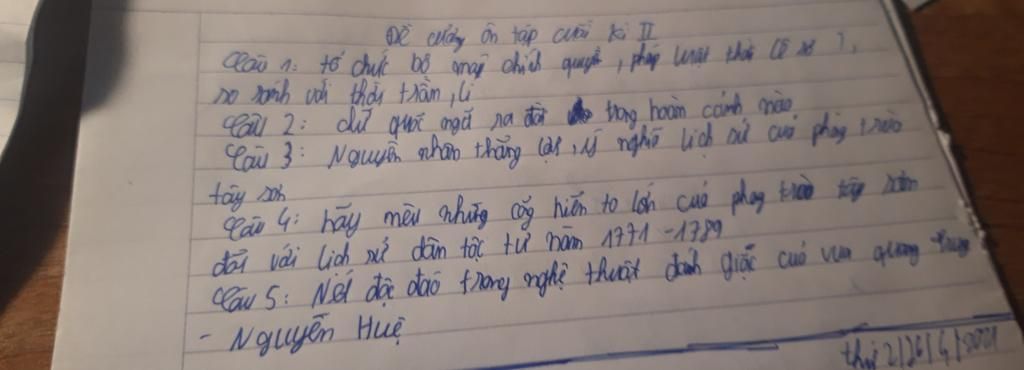 Đề cương ôn tập cuối kì II
Câu 1: tổ chức bộ máy chính quyền, pháp luật thời Lê sơ ?,
so sánh với thời trần, lí
Câu 2: chữ quốc ngữ ra đời trong hoàn cảnh nào
Câu 3: Nguyên nhân thắng lợi, ý nghĩa lịch sử của phong trào
tây sơn
Câu 4: hãy nêu những cống hiến to lớn của phong trào tây sơn
đối với lịch sử dân tộc từ năm 1771-1789
Câu 5: Nét độc đáo trong nghệ thuật đánh giặc của vua quang trung
- Nguyễn Huệ
thứ 2/26/4/2021